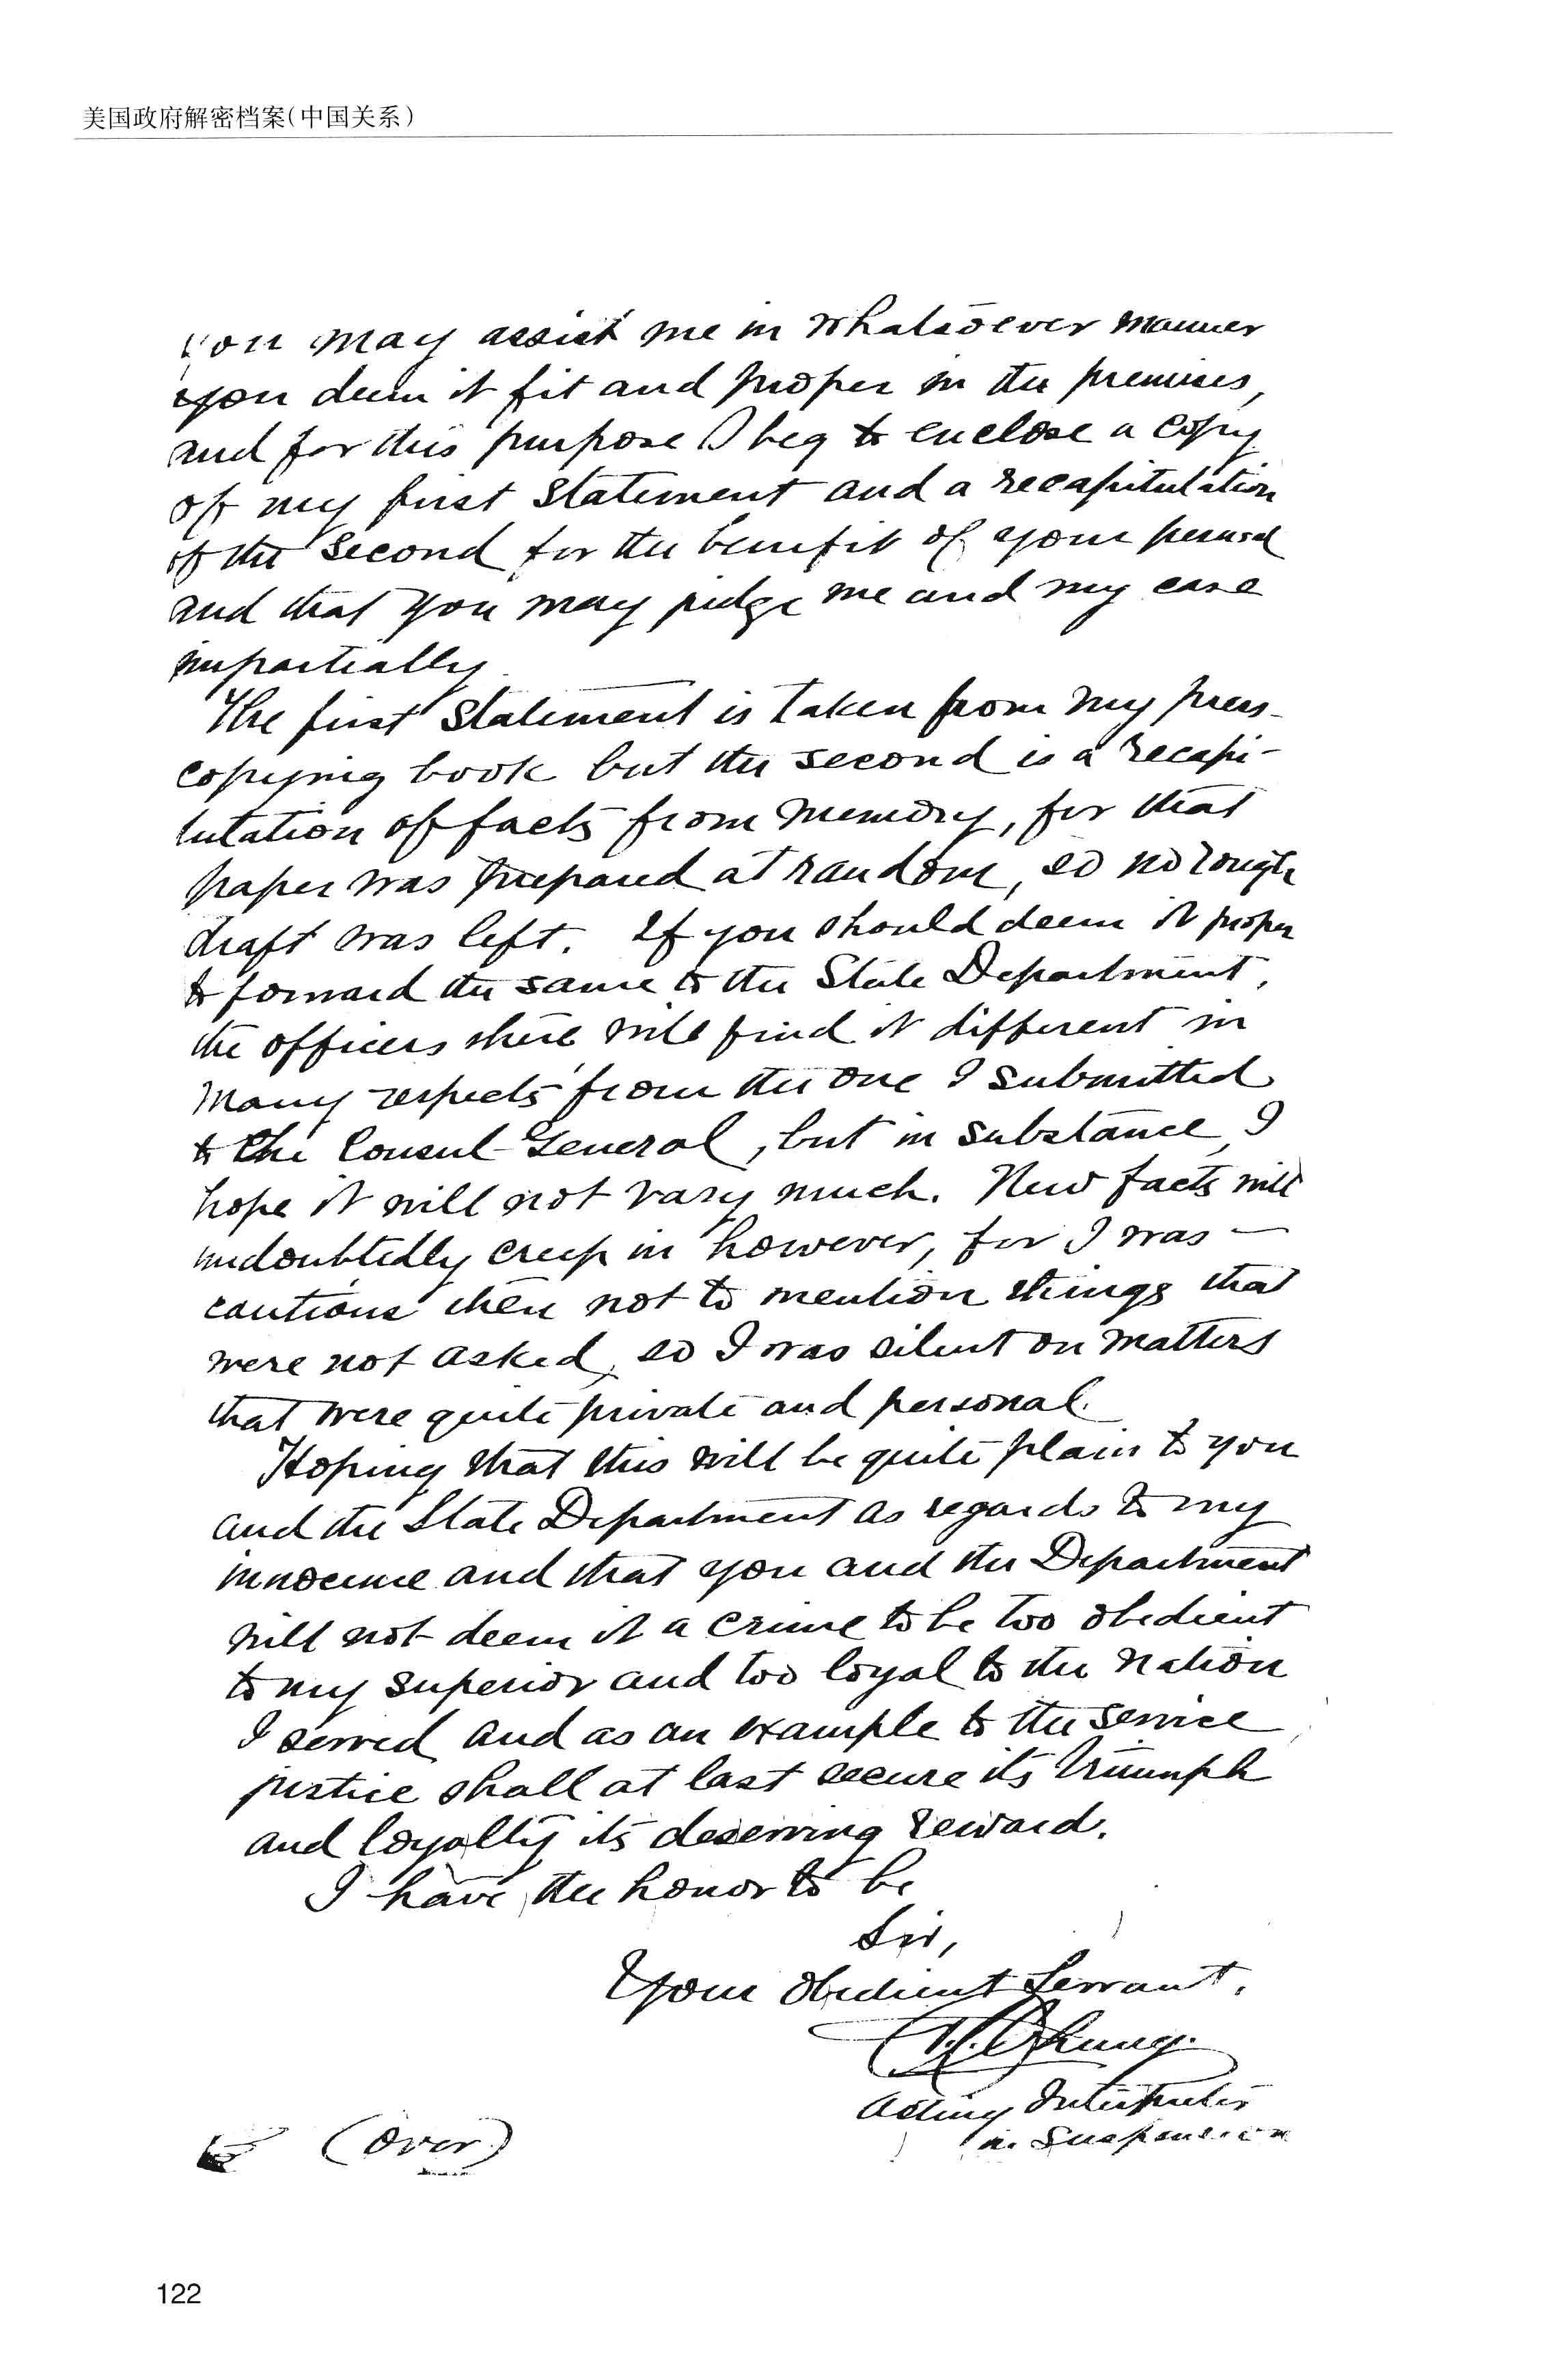 美国政府解密档案(中国关系)
you may assist me in whatsoever manner
you deem it fit and proper in the premises,
and for this purpose I beg to enclose a copy
of my first statement and a recapitulation
of the second for the benefit of your perusal
and that you may judge me and my case
impartially.
The first statement is taken from my press-
copying book but the second is a recapi-
tulation of facts from memory, for that
paper was prepared at random, so no rough
draft was left. If you should deem it proper
to forward the same to the State Department,
the officers there will find it different in
many respects from the one I submitted
to the Consul-General, but in substance, I
hope it will not vary much. New facts will
undoubtedly creep in however, for I was —
cautious then not to mention things that
were not asked, so I was silent on matters
that were quite private and personal.
Hoping that this will be quite plain to you
and the State Department as regards to my
innocence and that you and the Department
will not deem it a crime to be too obedient
to my superior and too loyal to the nation
I served and as an example to the service
justice shall at last secure its triumph
and loyalty its deserving reward.
I have the honor to be
Sir,
Your obedient Servant.
Acting Interpreter
in Suspension
(over)
122